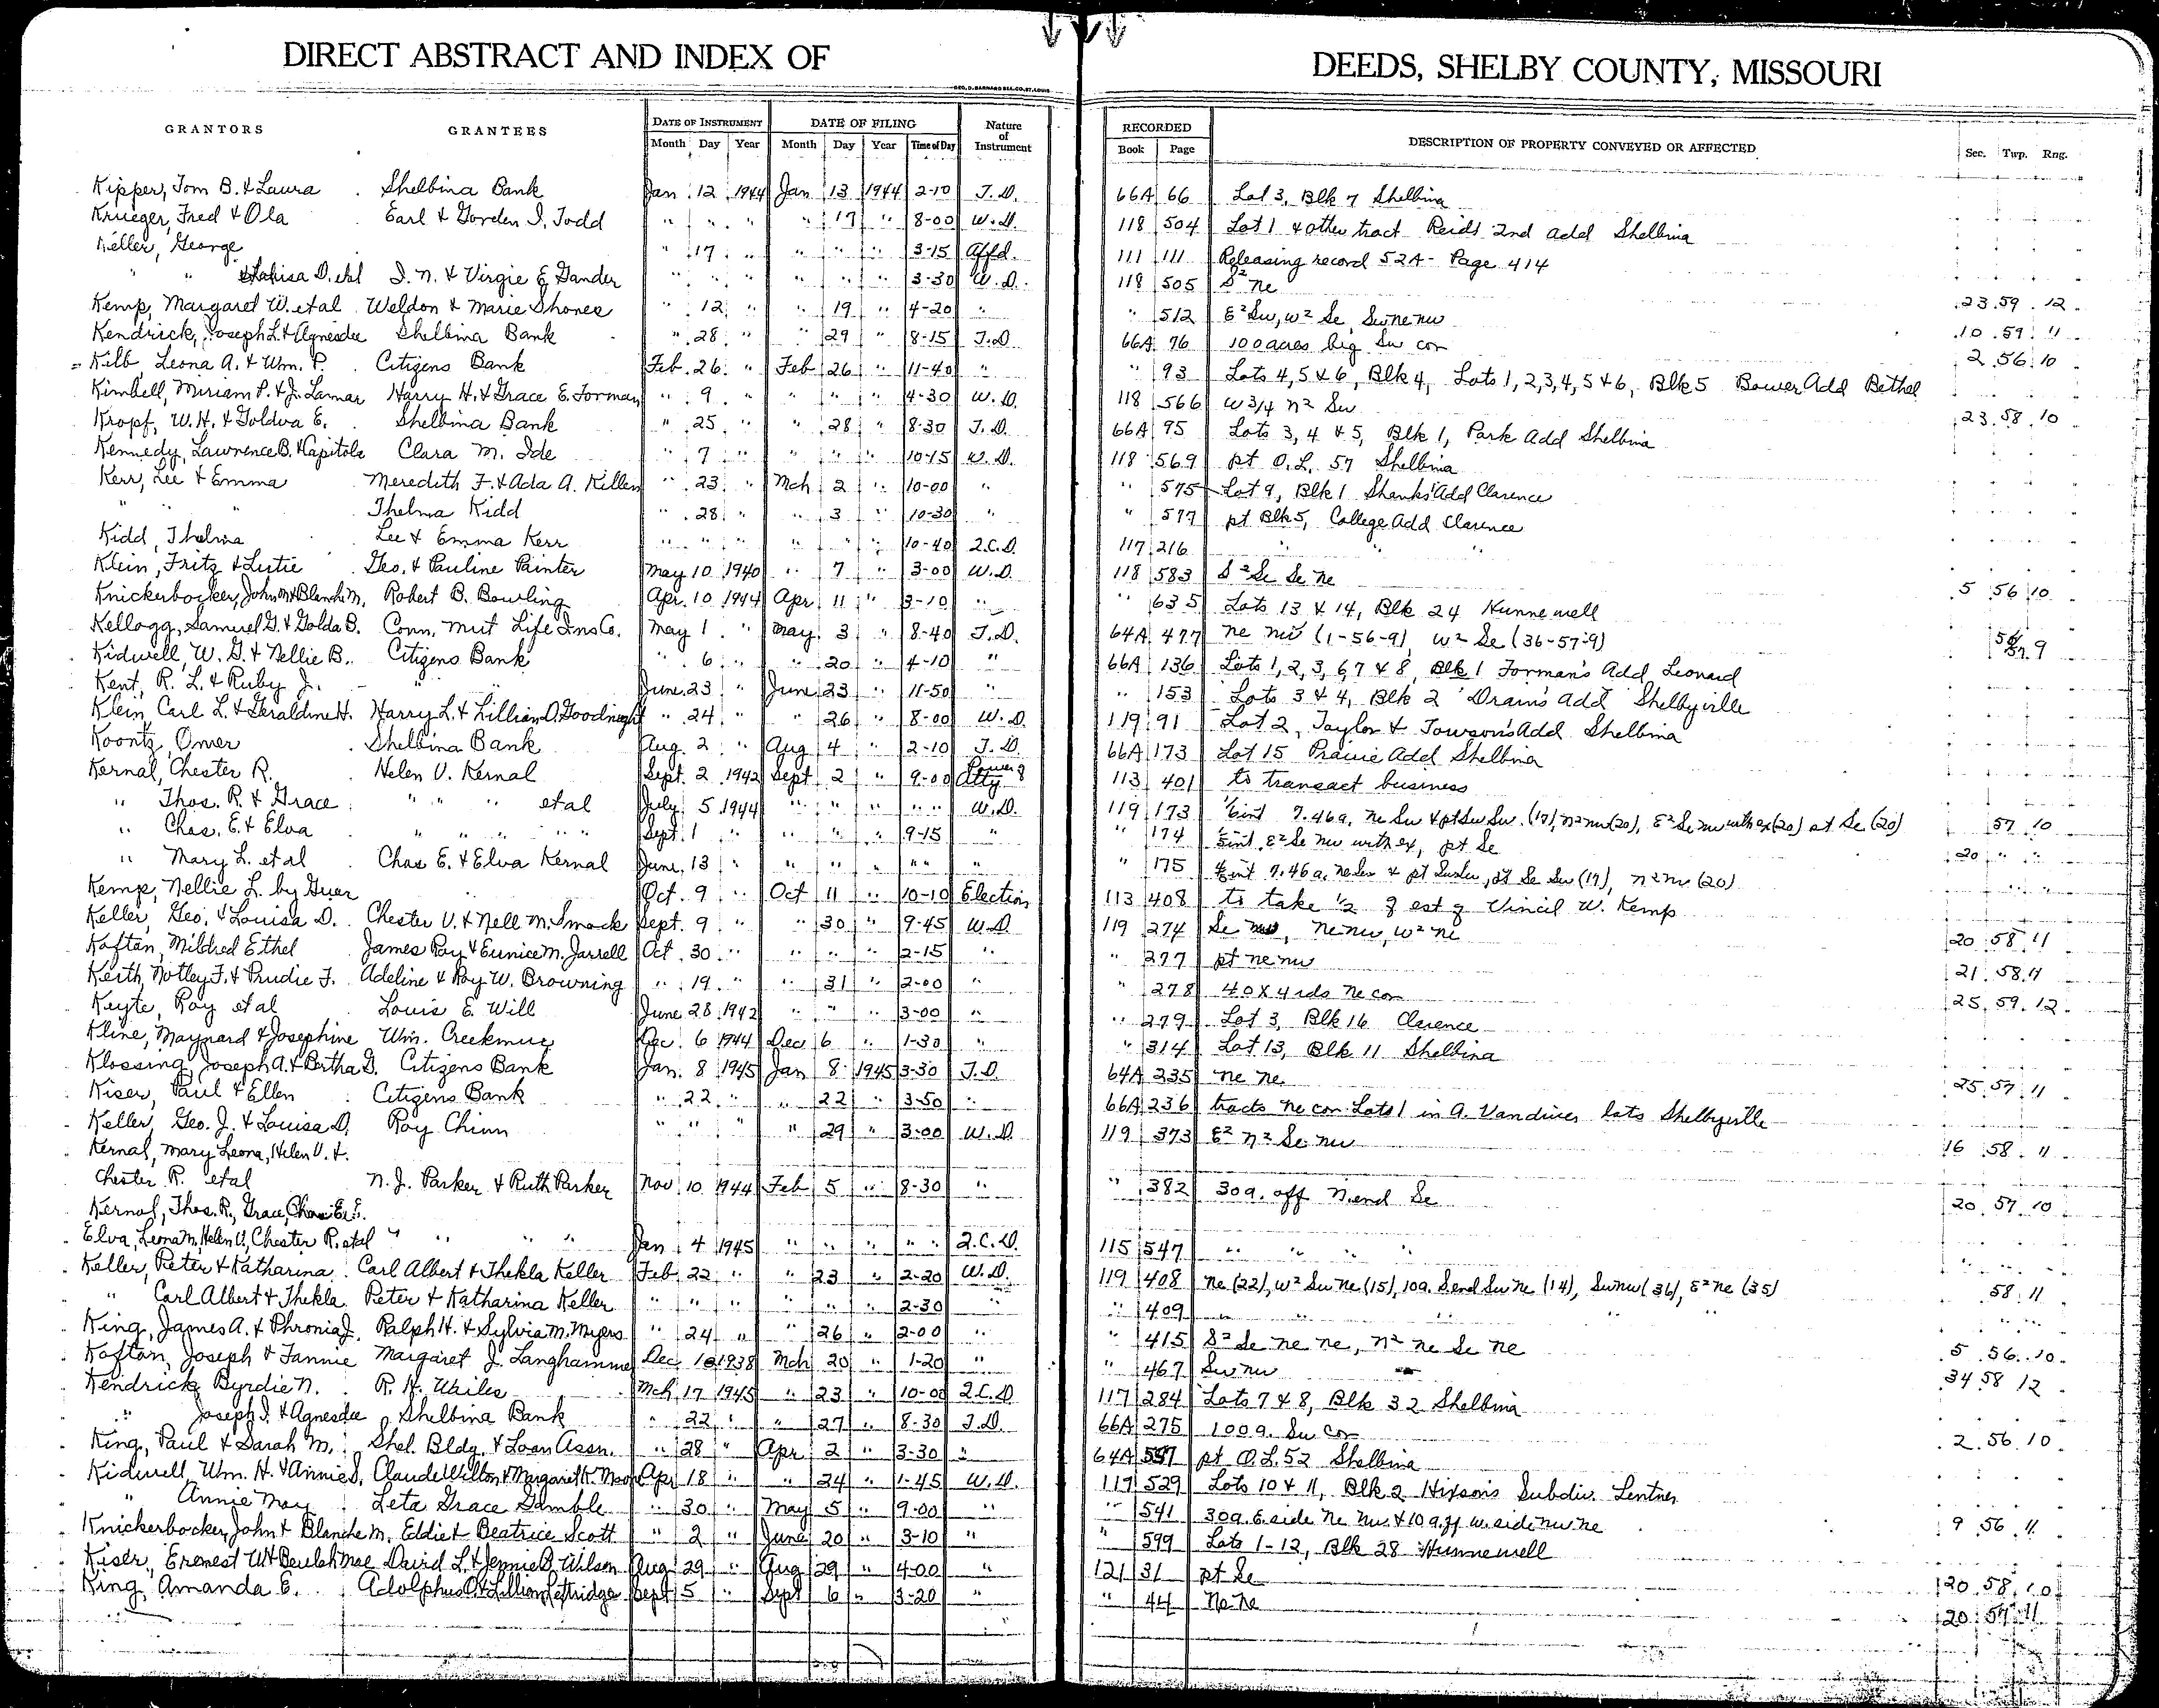 DIRECT ABSTRACT AND INDEX OF DEEDS, SHELBY COUNTY, MISSOURI
GEO. D. BARNARD & CO. ST. LOUIS
GRANTORS GRANTEES DATE OF INSTRUMENT DATE OF FILING Nature of Instrument RECORDED DESCRIPTION OF PROPERTY CONVEYED OR AFFECTED Sec. Twp. Rng.
Month Day Year Month Day Year Time of Day Book Page
Kipper, Tom B. & Laura Shelbina Bank Jan 12 1944 Jan 13 1944 2-10 T.D. 66A 66 Lot 3, Blk 7 Shelbina
Krueger, Fred & Ola Earl & Gorden I. Todd " " " " 17 " 8-00 W.D. 118 504 Lot 1 & other tract Reids 2nd Add Shelbina
Keller, George " 17 " " " " 3-15 Affd. 111 111 Releasing record 52A - Page 414
" " Louisa D. etal I. N. & Virgie E. Gander " " " " " " 3-30 W.D. 118 505 S² Ne 23 59 12
Kemp, Margaret W. etal Weldon & Marie Shones " 12 " " 19 " 4-20 " " 512 E² Sw, W² Se, Sw ne nw 10 59 11
Kendrick, Joseph L. & Agnesdee Shelbina Bank " 28 " " 29 " 8-15 T.D. 66A 76 100 acres beg Sw cor 2 56 10
Kilb, Leona A. & Wm. P. Citizens Bank Feb. 26 " Feb 26 " 11-40 " " 93 Lots 4, 5 & 6, Blk 4, Lots 1, 2, 3, 4, 5 & 6, Blk 5 Bower Add Bethel
Kimbell, Miriam P. & J. Lamar Harry H. & Grace E. Forman " 9 " " " " 4-30 W.D. 118 566 W 3/4 n² Sw 23 58 10
Kropf, W. H. & Goldva E. Shelbina Bank " 25 " " 28 " 8-30 T.D. 66A 95 Lots 3, 4 & 5, Blk 1, Park Add Shelbina
Kennedy, Lawrence B. & Kapitola Clara M. Ide " 7 " " " " 10-15 W.D. 118 569 pt O.L. 57 Shelbina
Kerr, Lee & Emma Meredith F. & Ada A. Killen " 23 " Mch 2 " 10-00 " " 575 Lot 9, Blk 1 Shanks' Add Clarence
" " " Thelma Kidd " 28 " " 3 " 10-30 " " 577 pt Blk 5, College Add Clarence
Kidd, Thelma Lee & Emma Kerr " " " " " " 10-40 Q.C.D. 117 216 " " "
Klein, Fritz & Lutie Geo. & Pauline Painter May 10 1940 " 7 " 3-00 W.D. 118 583 S² Se Se Ne 5 56 10
Knickerbocker, John M & Blanche M. Robert B. Bowling Apr. 10 1944 Apr. 11 " 3-10 " " 635 Lots 13 & 14, Blk 24 Hunnewell
Kellogg, Samuel G. & Golda B. Conn. Mut Life Ins Co. May 1 " May 3 " 8-40 T.D. 64A 477 Ne nw (1-56-9) W² Se (36-57-9) 56/57 9
Kidwell, W. G. & Nellie B. Citizens Bank " 6 " " 20 " 4-10 " 66A 136 Lots 1, 2, 3, 6, 7 & 8, Blk 1 Forman's Add Leonard
Kent, R. L. & Ruby J. " " June 23 " June 23 " 11-50 " " 153 Lots 3 & 4, Blk 2 Drain's Add Shelbyville
Klein, Carl L. & Geraldine H. Harry L. & Lillian D. Goodnight " 24 " " 26 " 8-00 W.D. 119 91 Lot 2, Taylor & Towson's Add Shelbina
Koontz, Omer Shelbina Bank Aug. 2 " Aug 4 " 2-10 T.D. 66A 173 Lot 15 Prairie Add Shelbina
Kernal, Chester R. Helen V. Kernal Sept. 2 1942 Sept 2 " 9-00 Power of Atty 113 401 to transact business
" Thos. R. & Grace " " " etal July 5 1944 " " " " " W.D. 119 173 1/6 int 7.46a. Ne Sw & pt Sw Sw. (17), n² nw (20), E² Se nw with ex (20) pt Se (20) 57 10
" Chas. E. & Elva " " " " " Sept. 1 " " " " 9-15 " " 174 int E² Se Nw with ex, pt Se 20 " "
" Mary L. et al Chas E. & Elva Kernal June 13 " " " " " " " " 175 int 7.46 a. Ne Sw & pt Sw Sw, pt Se Sw (17), n² Nw (20) " "
Kemp, Nellie L. by Guar Oct. 9 " Oct 11 " 10-10 Election 113 408 to take 1/2 of est of Vincil W. Kemp
Keller, Geo. & Louisa D. Chester V. & Nell M. Smock Sept. 9 " " 30 " 9-45 W.D. 119 274 Se nw, Ne nw, W² ne 20 58 11
Kaftan, Mildred Ethel James Ray & Eunice M. Jarrell Oct. 30 " " " " 2-15 " " 277 pt ne nw 21 58 11
Keith, Notley F. & Prudie F. Adeline & Roy W. Browning " 19 " " 31 " 2-00 " " 278 40 X 4 rds Ne cor 25 59 12
Keyte, Roy etal Louis E. Will June 28 1942 " " " 3-00 " " 279 Lot 3, Blk 16 Clarence
Kline, Maynard & Josephine Wm. Creekmur Dec. 6 1944 Dec 6 " 1-30 " " 314 Lot 13, Blk 11 Shelbina
Klossing, Joseph A. & Bertha G. Citizens Bank Jan. 8 1945 Jan 8 1945 3-30 T.D. 64A 235 Ne Ne 25 57 11
Kiser, Paul & Ellen Citizens Bank " 22 " " 22 " 3-50 " 66A 236 tracts Ne cor Lots 1 in A. Vandiver lots Shelbyville
Keller, Geo. J. & Louisa D. Roy Chinn " " " " 29 " 3-00 W.D. 119 373 E² n² Se nw 16 58 11
Kernal, Mary Leona, Helen V. &
Chester R. etal N. J. Parker & Ruth Parker Nov. 10 1944 Feb 5 " 8-30 " " 382 30a. off N. end Se 20 57 10
Kernal, Thos. R., Grace, Chas. E. &
Elva, Leona M, Helen V, Chester R. etal " " " " Jan 4 1945 " " " " " Q.C.D. 115 547 " " " " " "
Keller, Peter & Katharina Carl Albert & Thekla Keller Feb 22 " " 23 " 2-20 W.D. 119 408 Ne (22), W² Sw Ne (15), 10a. S end Sw Ne (14), Sw nw (36), E² Ne (35) 58 11
" Carl Albert & Thekla Peter & Katharina Keller " " " " " " 2-30 " " 409 " " " " "
King, James A. & Phronia J. Ralph H. & Sylvia M. Myers " 24 " " 26 " 2-00 " " 415 S² Se Ne Ne, N² Ne Se Ne 5 56 10
Kaftan, Joseph & Fannie Margaret J. Langhammer Dec 16 1938 Mch 20 " 1-20 " " 467 Sw nw 34 58 12
Kendrick Byrdie N. R. H. Wailes Mch 17 1945 " 23 " 10-00 Q.C.D. 117 284 Lots 7 & 8, Blk 32 Shelbina
" Joseph L. & Agnesdee Shelbina Bank " 22 " " 27 " 8-30 T.D. 66A 275 100a. Sw cor 2 56 10
King, Paul & Sarah M. Shel. Bldg. & Loan Assn. " 28 " Apr 2 " 3-30 " 64A 597 pt O.L. 52 Shelbina
Kidwell, Wm. H. & Annie S. Claude Wilton & Margaret K. Moon Apr 18 " " 24 " 1-45 W.D. 119 529 Lots 10 & 11, Blk 2 Hixson's Subdiv. Lentner
" Annie May Leta Grace Gamble " 30 " May 5 " 9-00 " " 541 30a. E. side Ne Nw. & 10 a. off W. side nw ne 9 56 11
Knickerbocker, John & Blanche M. Eddie & Beatrice Scott " 2 " June 20 " 3-10 " " 599 Lots 1-12, Blk 28 Hunnewell
Kiser, Erenest W & Beulah Mae David L. & Jennie B. Wilson Aug 29 " Aug 29 " 4-00 " 121 31 pt Se 20 58 10
King, Amanda E. Adolphus O. & Lillian Lettridge Sept 5 " Sept 6 " 3-20 " " 44 Ne Ne 20 57 11